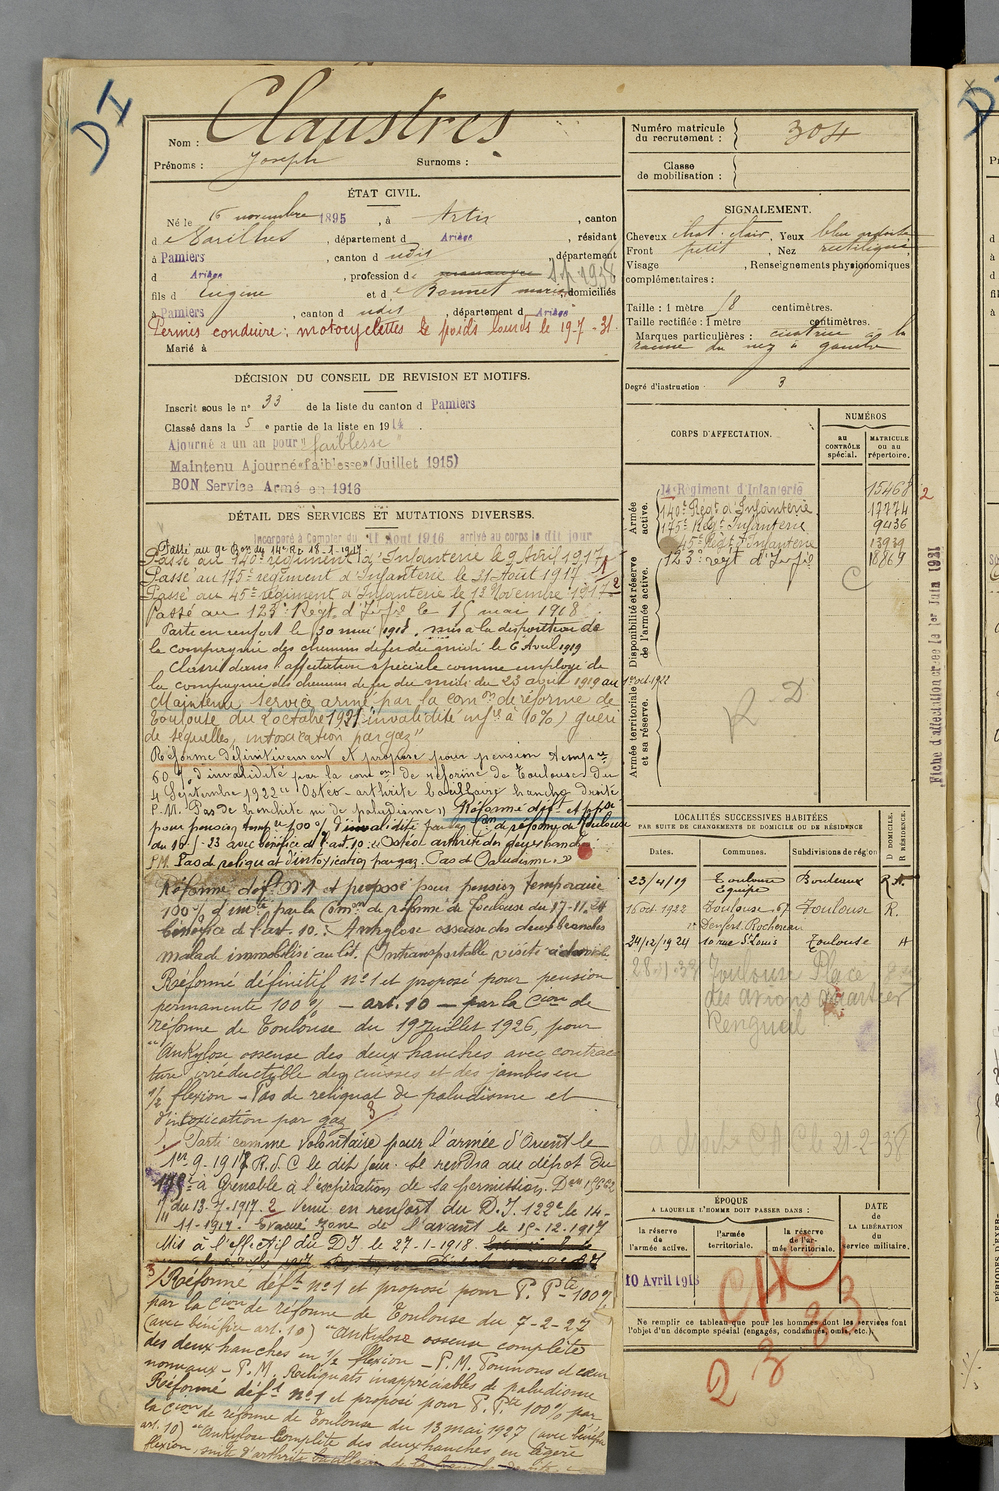 DI
Nom : Claustres
Prénoms : Joseph Surnoms :
Numéro matricule du recrutement : 304
Classe de mobilisation :
ÉTAT CIVIL.
Né le 16 novembre 1895, à Artix, canton
de Varilhes, département d Ariège, résidant
à Pamiers, canton d udis, département
d Ariège, profession de
fils d Eugène et de Bonnet Marie, domiciliés
à Pamiers, canton d udis, département d Ariège
Permis conduire : motocyclettes & poids lourds le 19-7-31.
Marié à
DÉCISION DU CONSEIL DE REVISION ET MOTIFS.
Inscrit sous le n° 33 de la liste du canton d Pamiers
Classé dans la 5 e partie de la liste en 1914.
Ajourné à un an pour "faiblesse"
Maintenu Ajourné "faiblesse" (Juillet 1915)
BON Service Armé en 1916
DÉTAIL DES SERVICES ET MUTATIONS DIVERSES.
Incorporé à Compter du 11 Aout 1916 arrivé au corps le dit jour
Passé au 9e Bon du 14e Ri 18-1-1917
Passé au 140e régiment d'Infanterie le 9 Avril 1917
Passé au 175e régiment d'Infanterie le 31 Août 1917
Passé au 45e régiment d'Infanterie le 12 Novembre 1917
Passé au 123e Régt d'Infie le 16 mai 1918
Parti en renfort le 30 mai 1918, mis à la disposition de
la compagnie des chemins de fer du midi le 6 Avril 1919
Classé dans l'affectation spéciale comme employé de
la compagnie des chemins de fer du midi du 23 avril 1919 au 1er oct. 1922
Maintenu service armé par la comon de réforme de
Toulouse du 2 octobre 1921 invalidité infre à 10%) guéri
de séquelles, intoxication par gaz"
Réformé définitivement et proposé pour pension tempre
60% d'invalidité par la comon de réforme de Toulouse du
4 Septembre 1922 "Ostéo-arthrite bacillaire hanche droite
P.M. Pas de bronchite ni de paludisme" Réformé déft et prop.
pour pension tempre 100% d'invalidité par la Con de réforme de Toulouse
du 10-5-23 avec bénéfice de l'art. 10. "Ostéo arthrite des deux hanches
P.M. Pas de reliquat d'intoxication par gaz. Pas de Paludisme."
Réformé déf. N°1 et proposé pour pension temporaire
100% d'inité par la Comon de réforme de Toulouse du 17-11-24
bénéfice de l'art. 10. : Ankylose osseuse des deux hanches
malade immobilisé au lit. Intransportable visité à domicile
Réformé définitif n°1 et proposé pour pension
permanente 100% - art. 10 - par la Cion de
réforme de Toulouse du 19 Juillet 1926, pour
"Ankylose osseuse des deux hanches avec contrac
ture irréductible des cuisses et des jambes en
1/2 flexion - Pas de reliquat de paludisme et
d'intoxication par gaz 3/
1/ Parti comme volontaire pour l'armée d'Orient le
1er-9-1917 R.d.C le dit jour. Se rendra au dépôt du
175e à Grenoble à l'expiration de sa permission.
du 13-7-1917. 2 Venu en renfort du D.I. 122e le 14-
11-1917. Evacué zone de l'avant le 15-12-1917
Mis à l'effectif du DI le 27-1-1918.
3/ Réformé déft n°1 et proposé pour P. Pte 100%
par la Cion de réforme de Toulouse du 7-2-27
(avec bénéfice art. 10) "Ankylose osseuse complète
des deux hanches en 1/2 flexion - P.M. Poumons et cœur
normaux - P.M. Reliquats inappréciables de paludisme
Réformé déft n°1 et proposé pour P. Pte 100% par
la Cion de réforme de Toulouse du 13 mai 1927 (avec bénéfice
art. 10) "Ankylose complète des deux hanches en légère
flexion, suite d'arthrite
SIGNALEMENT.
Cheveux chat. clair, Yeux bleu
Front petit, Nez rectiligne,
Visage , Renseignements physionomiques
complémentaires :
Taille : 1 mètre 58 centimètres.
Taille rectifiée : 1 mètre centimètres.
Marques particulières : cicatrice à la
racine du nez à gauche
Degré d'instruction : 3
CORPS D'AFFECTATION.
NUMÉROS
au CONTRÔLE spécial.
MATRICULE ou au répertoire.
Armée active.
14e Régiment d'Infanterie 15468
140e Régt d'Infanterie 17774
175e Régt Infanterie 9436
45e Régt d'Infanterie 13939
123e regt d'Infie 18869
2
C
Disponibilité et réserve de l'armée active.
Armée territoriale et sa réserve.
R D
Fiche d'affectation créée le 1er Juin 1921
LOCALITÉS SUCCESSIVES HABITÉES
PAR SUITE DE CHANGEMENTS DE DOMICILE OU DE RÉSIDENCE
Dates. Communes. Subdivisions de région D DOMICILE. R RÉSIDENCE.
23/4/19 Toulouse Equipe Bordeaux R.
16 oct. 1922 Toulouse, 67 Toulouse R.
r. Denfert Rochereau
24/12/1924 10 rue St Louis Toulouse A
28-1-39 Toulouse Place
des Avions Quartier
Rengueil
21-2-38
ÉPOQUE
A LAQUELLE L'HOMME DOIT PASSER DANS :
la réserve de l'armée active.
l'armée territoriale.
la réserve de l'armée territoriale.
DATE DE LA LIBÉRATION du service militaire.
10 Avril 1918
Ne remplir ce tableau que pour les hommes dont les services font
l'objet d'un décompte spécial (engagés, condamnés, omis, etc.).
2 3 3 3